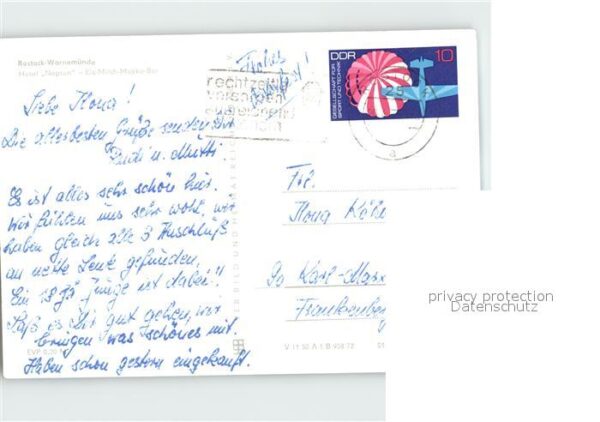 Rostock-Warnemünde
Hotel „Neptun" – Eis-Milch-Mokka-Bar
Liebe Ilona!
Die allerbesten Grüße senden Dir
Rudi u. Mutti.
Es ist alles sehr schön hier.
Wir fühlen uns sehr wohl, wir
haben gleich alle 3 Anschluß
an nette Leute gefunden,
Ein 18 jä. Junge ist dabei!
Laß es Dir gut gehen, wir
bringen was schönes mit.
Haben schon gestern eingekauft.
Frohes
rechtzeitig
DDR
10
GESELLSCHAFT FÜR
SPORT UND TECHNIK
Frl.
Ilona
90 Karl-Marx
Frankenberg
V 11 50 A 1 B 958 72
EVP 0,20
privacy protection
Datenschutz